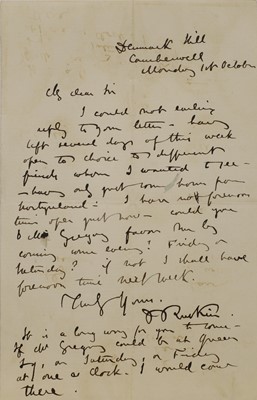 Denmark Hill
Camberwell
Monday 1st October
My dear Sir
I could not earlier
reply to your letter - having
left several days of this week
open to choice to different
friends whom I wanted to see
- have only just hours from
- I have not forenoon
time open just now - could you
& Mr Gregory favour me by
coming some even? Friday or
Saturday? if not I shall have
forenoon time next week.
Truly Yours.
J Ruskin.
It is a long way for you to come -
If Mr Gregory could be at Queen
Sq, on Saturday, or Friday
at one o clock. I would come
there.